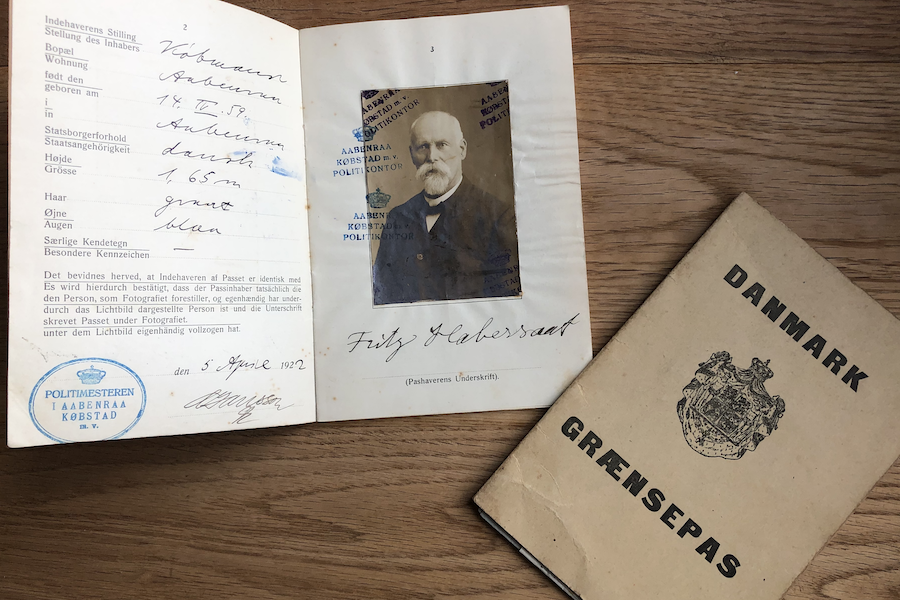 2
Indehaverens Stilling
Stellung des Inhabers
Købmand
Bopæl
Wohnung
Aabenraa
født den
geboren am
14. IV. 59.
i
in
Aabenraa
Statsborgerforhold
Staatsangehörigkeit
dansk
Højde
Grösse
1,65 m
Haar
graat
Øjne
Augen
blaa
Særlige Kendetegn
Besondere Kennzeichen
—
Det bevidnes herved, at Indehaveren af Passet er identisk med
Es wird hierdurch bestätigt, dass der Passinhaber tatsächlich die
den Person, som Fotografiet forestiller, og egenhændig har under-
durch das Lichtbild dargestellte Person ist und die Unterschrift
skrevet Passet under Fotografiet.
unter dem Lichtbild eigenhändig vollzogen hat.
den 5 April 1922
POLITIMESTEREN
I AABENRAA
KØBSTAD
m. v.
3
AABENRAA
KØBSTAD m. v.
POLITIKONTOR
AABENRAA
KØBSTAD m. v.
POLITIKONTOR
AABENRAA
KØBSTAD
POLITIKONTOR
Fritz Habersaat
(Pashaverens Underskrift).
DANMARK
GRÆNSEPAS